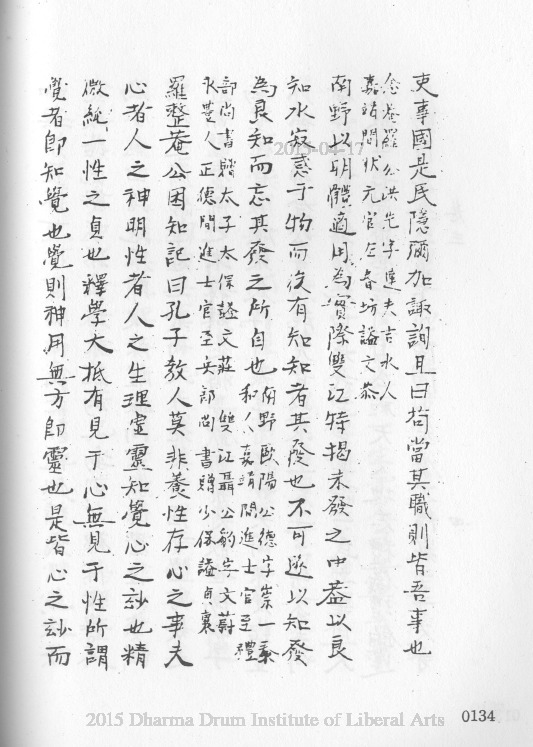 吏事國是民隱彌加諏詢且曰苟當其職則皆吾事也
念菴羅公洪先字達夫吉水人
嘉靖間狀元官左春坊諡文恭
南野以明體適用為實際雙江特揭未發之中蓋以良
知水寂惑于物而後有知知者其發也不可遂以知發
為良知而忘其發之所自也
南野歐陽公德字崇一泰
和人嘉靖間進士官至禮
部尚書贈太子太保諡文莊
雙江聶公豹字文蔚
永豐人正德間進士官至兵部尚書贈少保諡貞襄
羅整庵公困知記曰孔子教人莫非養性存心之事夫
心者人之神明性者人之生理虛靈知覺心之玅也精
微純一性之貞也釋學大抵有見于心無見于性所謂
覺者卽知覺也覺則神用無方卽靈也是皆心之玅而
2015-04-17
2015 Dharma Drum Institute of Liberal Arts
0134